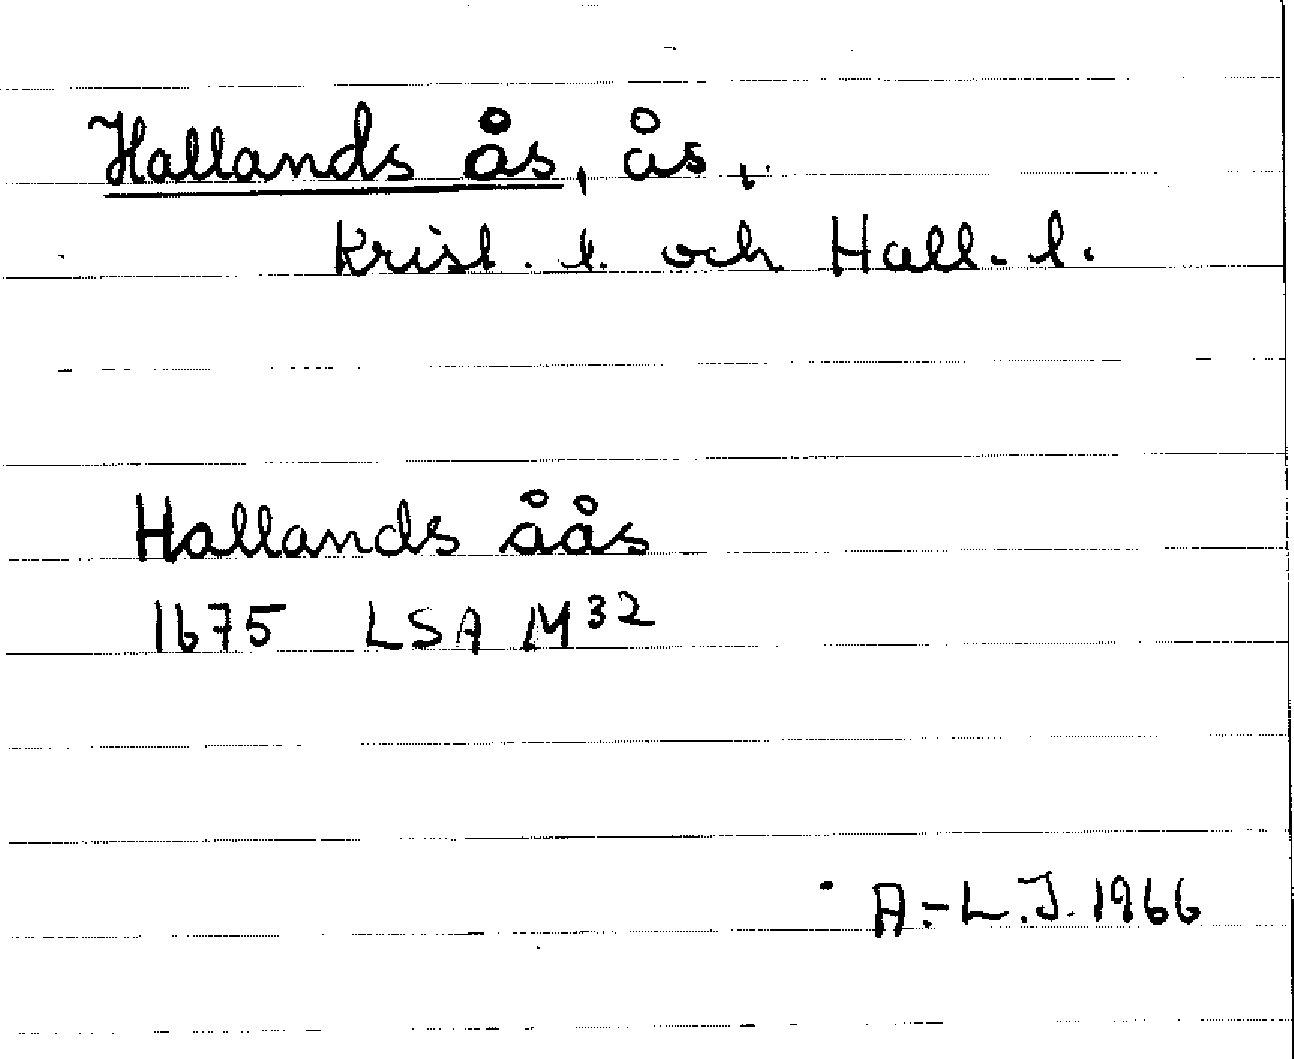 Hallands ås, ås,
Krist. l. och Hall. l.
Hallands åås
1675 LSA M32
A.-L.J. 1966